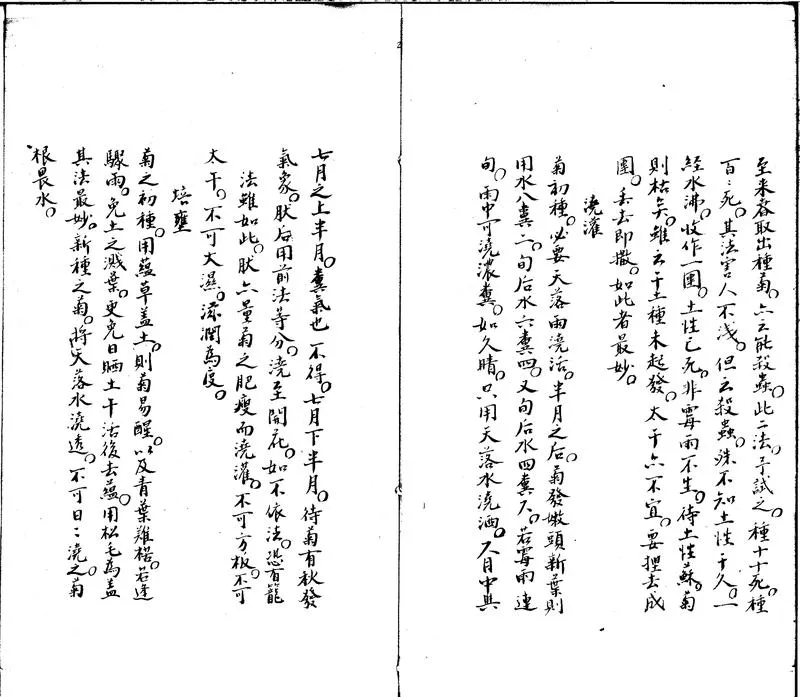 至来春取出種菊。六云能殺蟲。此二法。予試之。種十十死。種
百〻死。其法害人不浅。但云殺蟲。殊不知土性干久。一
經水沸。收作一團。土性已死。非霉雨不生。待土性蘇。菊
則枯矣。雖云干土種未起發。太干亦不宜。要捏去成
團。丢去即撒。如此者最妙。
澆灌
菊初種。必要天落雨澆活。半月之后。菊發嫩頭新葉則
用水八糞二。旬后水六糞四。又旬后水四糞六。若霉雨連
旬。雨中可澆濃糞。如久晴。只用天落水澆洒。六月中與
七月之上半月。糞氣也不得。七月下半月。待菊有秋發
氣象。肰后用前法等分。澆至開花。如不依法。恐有籠
法雖如此。肰亦量菊之肥瘦而澆灌。不可方板。不可
太干。不可大濕。滋潤為度。
培壅
菊之初種。用蘊草盖土。則菊易醒。以及青葉難楛。若逢
驟雨。免土之濺葉。更免日晒土干活後去蘊。用松毛為盖
其法最妙。新種之菊。將天落水澆透。不可日〻澆之菊
根畏水。